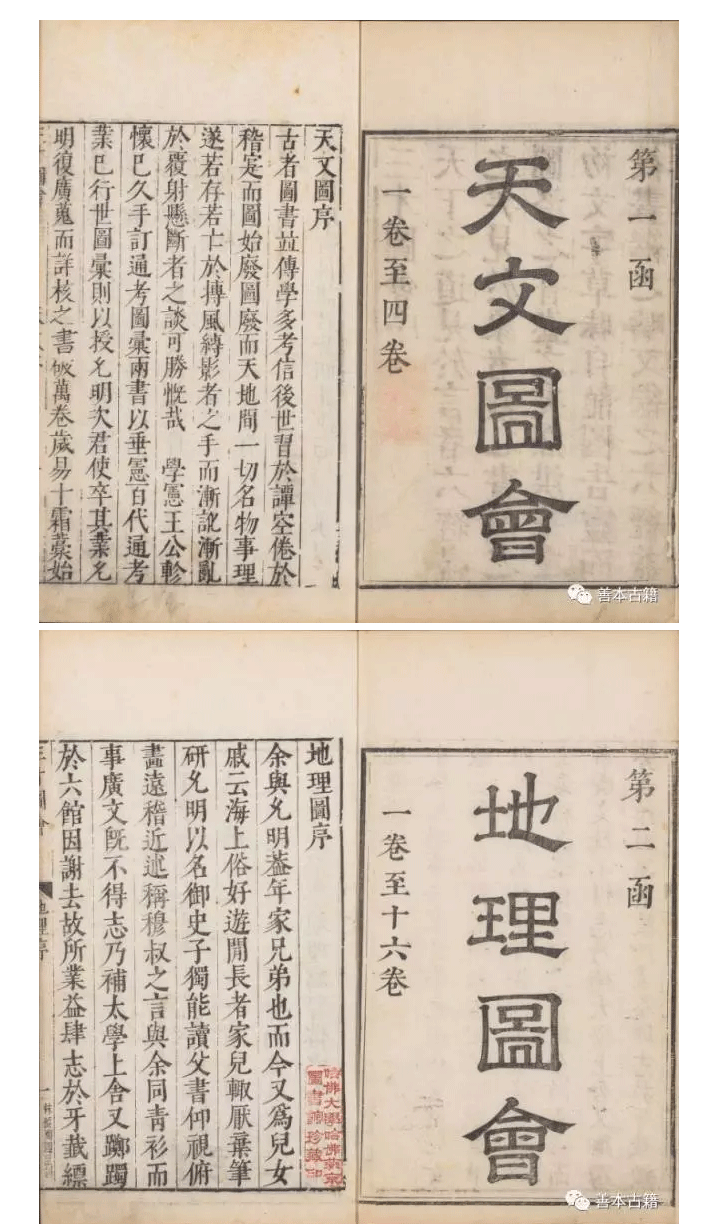 第一函
天文圖會
一卷至四卷
天文圖序
古者圖書並傳學多考信後世習於譚空倦於
稽寔而圖始廢圖廢而天地間一切名物事理
遂若存若亡於摶風縛影者之手而漸訛漸亂
於覆射懸斷者之談可勝慨哉 學憲王公軫
懷已久手訂通考圖彙兩書以垂憲百代通考
業已行世圖彙則以授允明次君使卒其業允
明復廣蒐而詳核之書破萬卷歲易十霜藁始
善本古籍
第二函
地理圖會
一卷至十六卷
地理圖序
余與允明葢年家兄弟也而今又為兒女
戚云海上俗好遊閒長者家兒輙厭棄筆
研允明以名御史子獨能讀父書仰視俯
畫遠稽近述稱穆叔之言與余同青衫而
事廣文旣不得志乃補太學上舍又躑躅
於六館因謝去故所業益肆志於牙籤縹
地理序
一
哈佛大學哈佛燕京
圖書館珍藏印
善本古籍